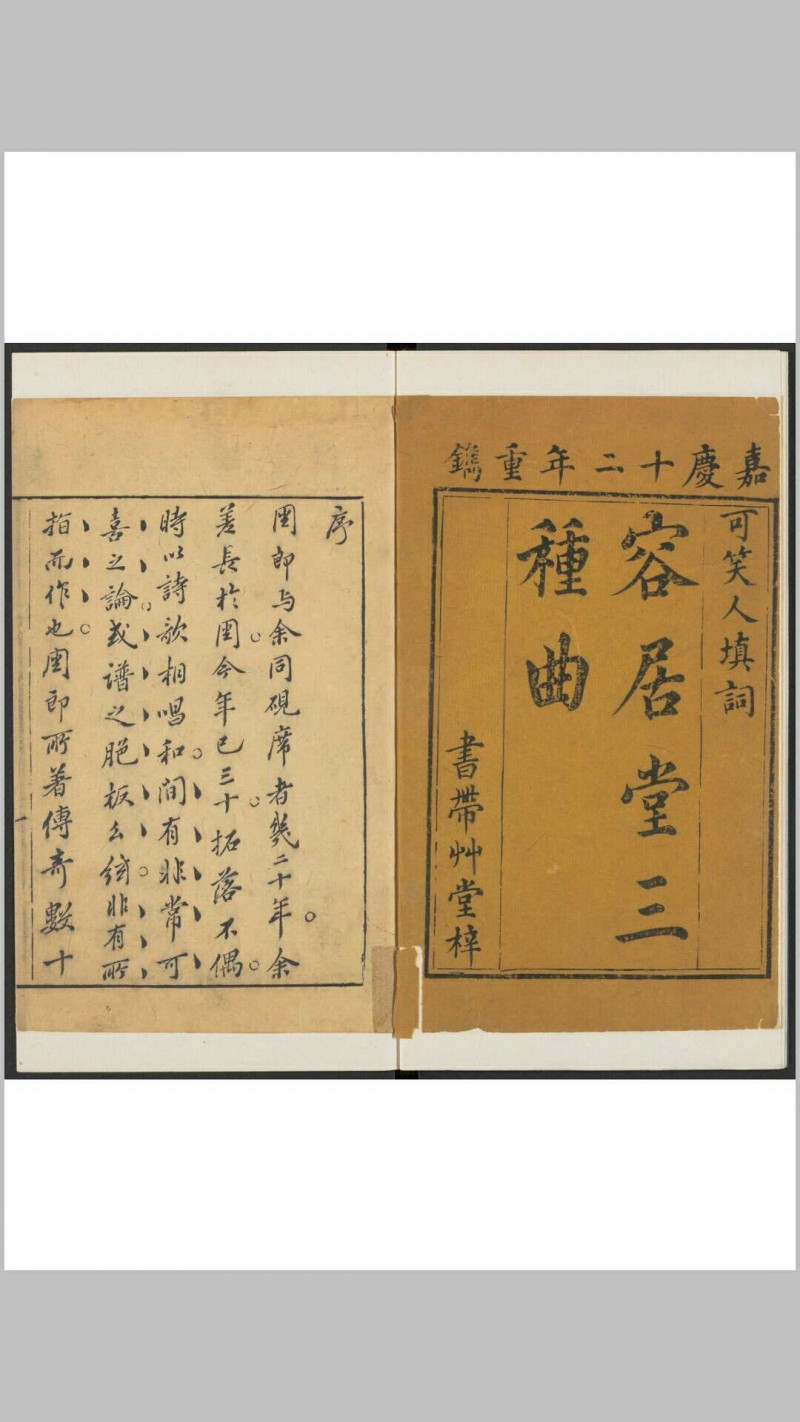 嘉慶十二年重鐫
可笑人填詞
容居堂三
種曲
書帶艸堂梓
序
周郎与余同硯席者幾二十年余
差長於周今年已三十拓落不偶
時以詩歌相唱和間有非常可
喜之論或譜之脃板幺絃非有所
指而作也周郎所著傳奇數十